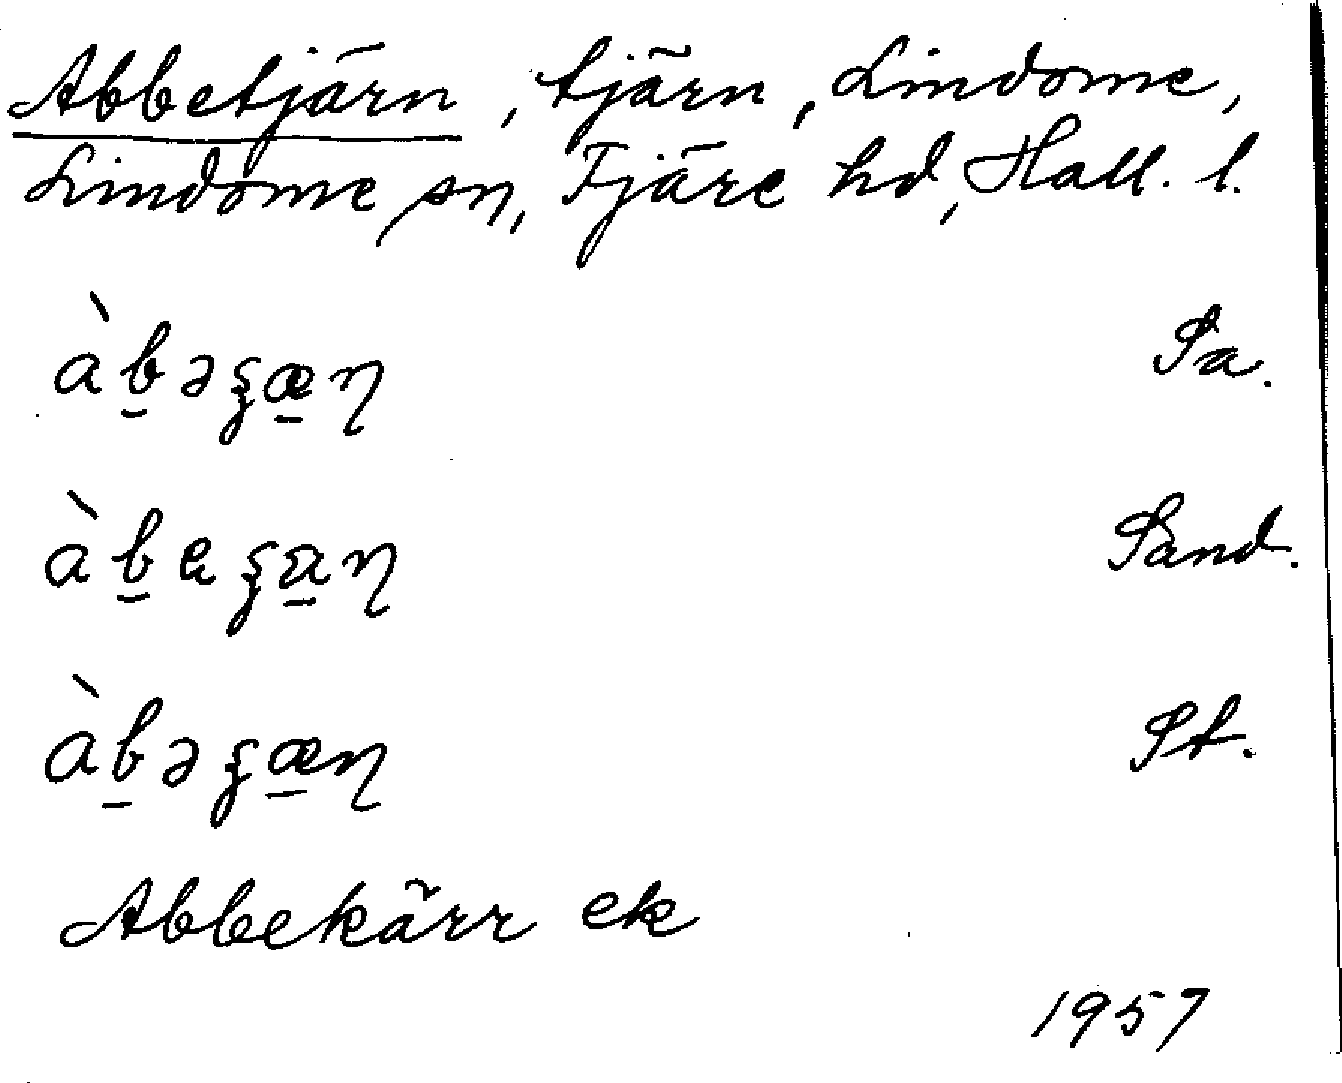 Abbetjärn, tjärn, Lindome,
Lindome sn, Fjäre hd, Hall. l.
àb̲əʂæ̲ɳ Sa.
àb̲eʂa̲ɳ Sand.
àb̲əʂæ̲ɳ St.
Abbekärr ek
1957